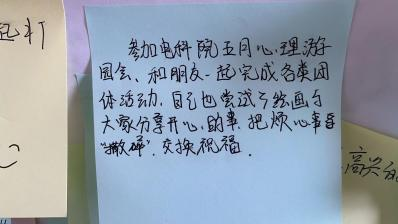 起打
参加电科院五月心理游
园会、和朋友一起完成各类团
体活动,自己也尝试了绘画与
大家分享开心的事,把烦心事
"撒碎",交换祝福.
高兴